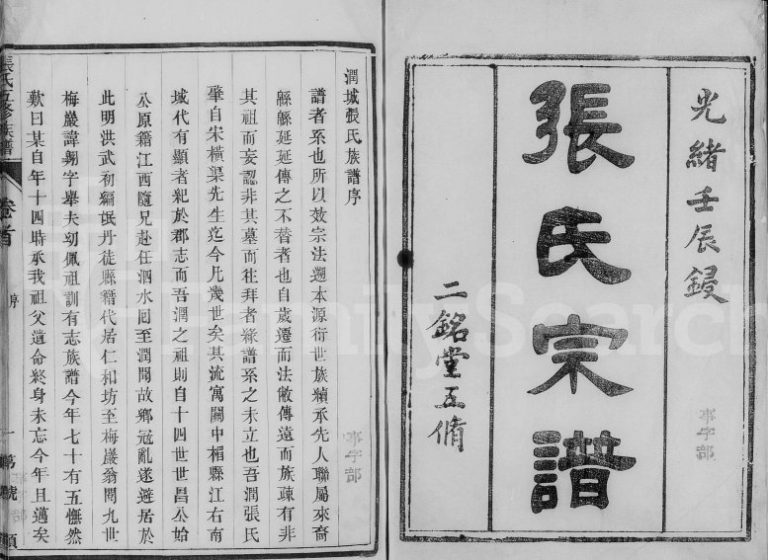 光緒壬辰鋟
張氏宗譜
二銘堂五脩
潤城張氏族譜序
譜者系也所以效宗法遡本源衍世族績承先人聯屬來裔
緜緜延延傳之不替者也自歲遷而法敝傳遠而族疎有非
其祖而妄認非其墓而往拜者緣譜系之未立也吾潤張氏
肇自宋橫渠先生迄今凡幾世矣其流寓關中楫縣江右南
城代有顯者紀於郡志而吾潤之祖則自十四世世昌公始
公原籍江西隨兄赴任泗水囘至潤聞故鄉寇亂遂避居於
此明洪武初編氓丹徒縣籍代居仁和坊至梅巖翁閱九世
梅巖諱翱字舉夫幼佩祖訓有志族譜今年七十有五憮然
歎曰某自年十四時承我祖父遺命終身未忘今年且邁矣
張氏五修族譜
卷首
序
一
萬號
FamilySearch